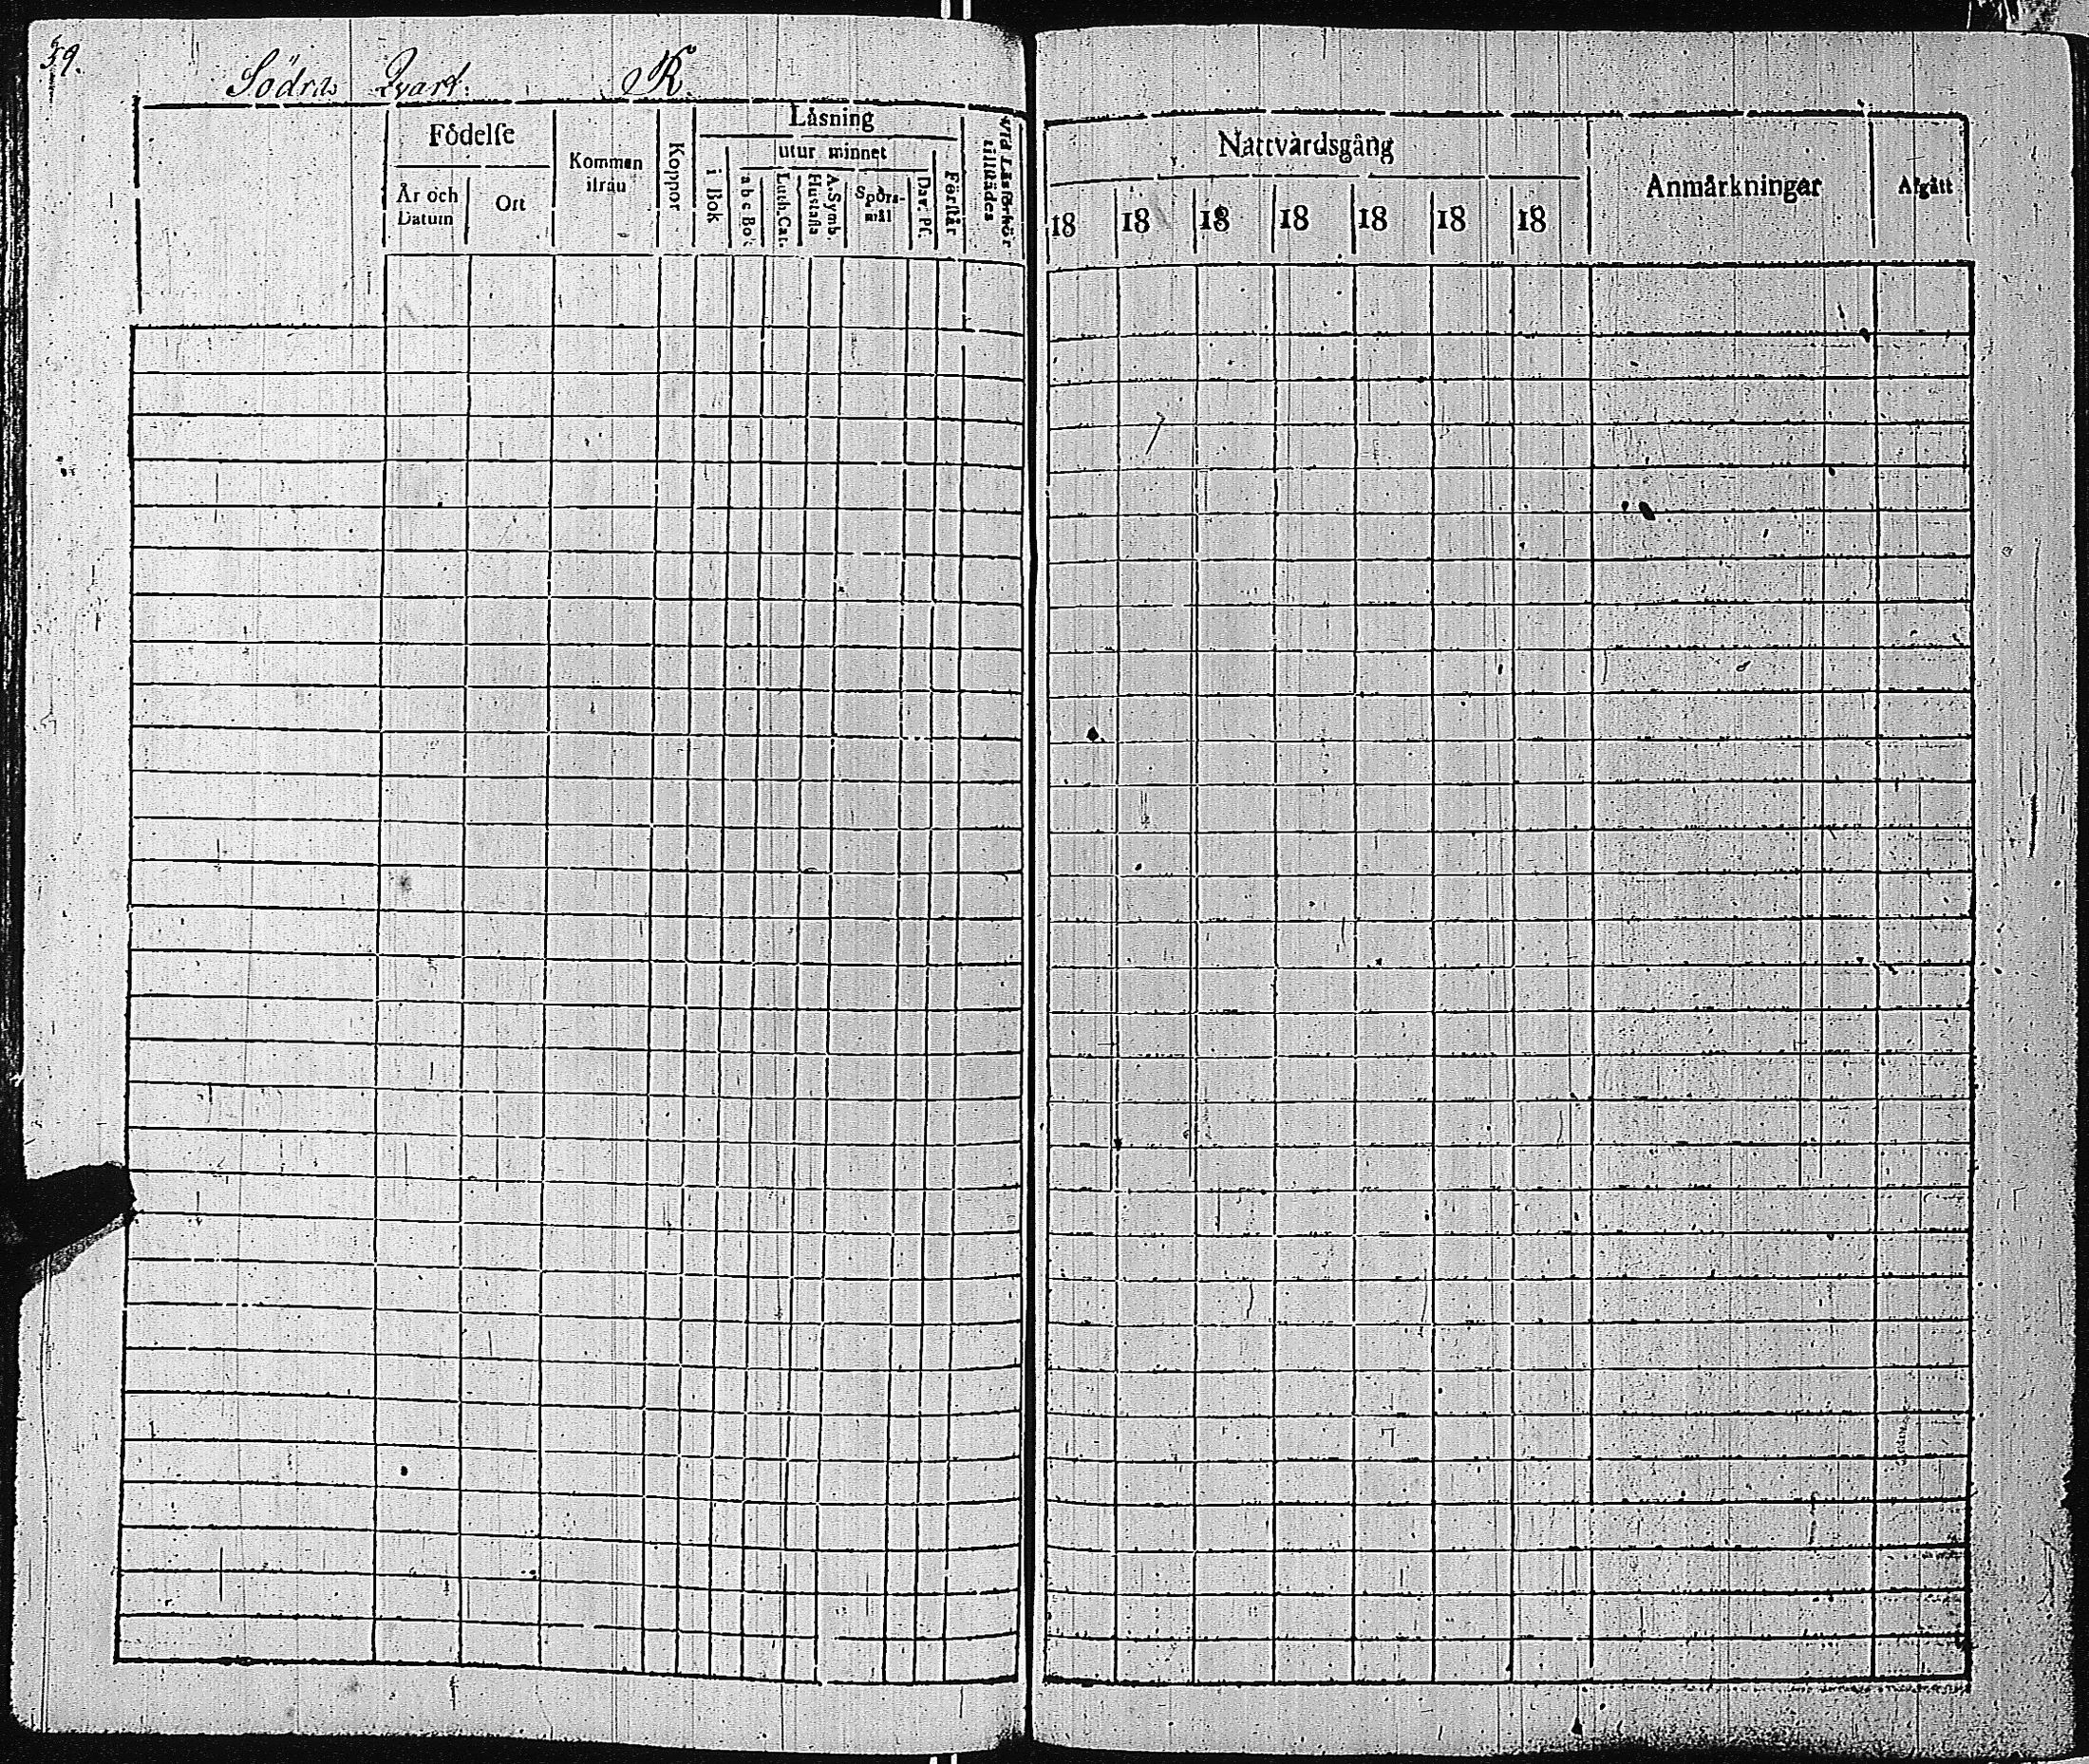 59.
Södra Qvart. R.
Födelse
År och Datum
Ort
Kommen ifrån
Koppor
Läsning
i Bok
utur minnet
a b c Bok
Luth. Cat.
A. Symb. Hustafla
Spörs-mål
Dav. Ps.
Förstår
Vid Läsförhör tillstädes
Nattvardsgång
18 18 18 18 18 18 18
Anmärkningar
Afgått